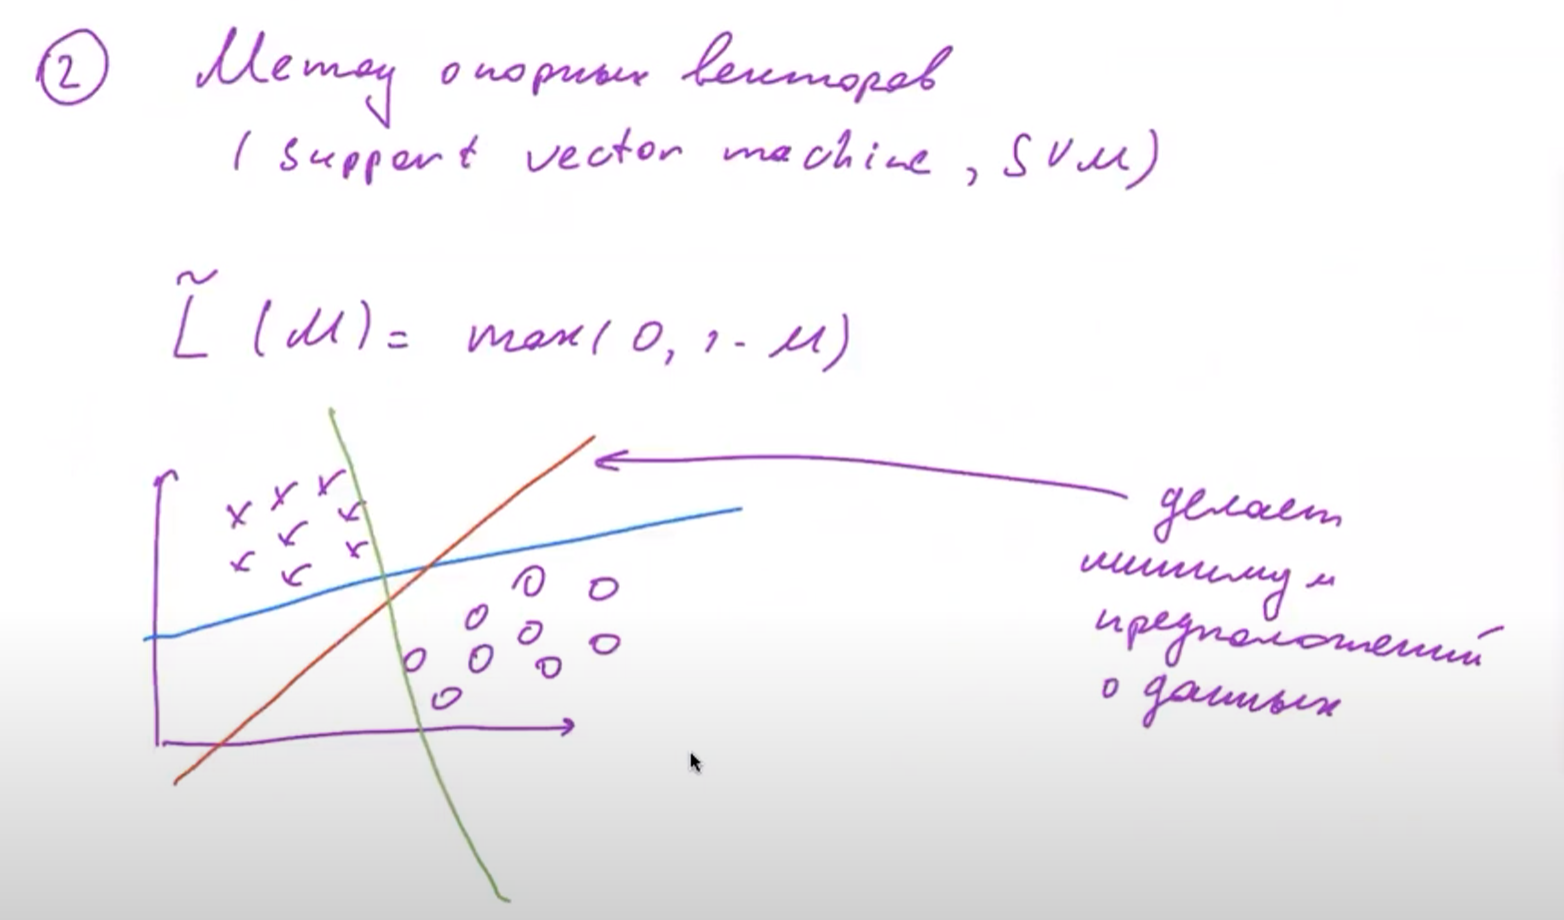 2 Метод опорных векторов
(support vector machine, SVM)
L̃(M) = max(0, 1 - M)
делает
минимум
предположений
о данных